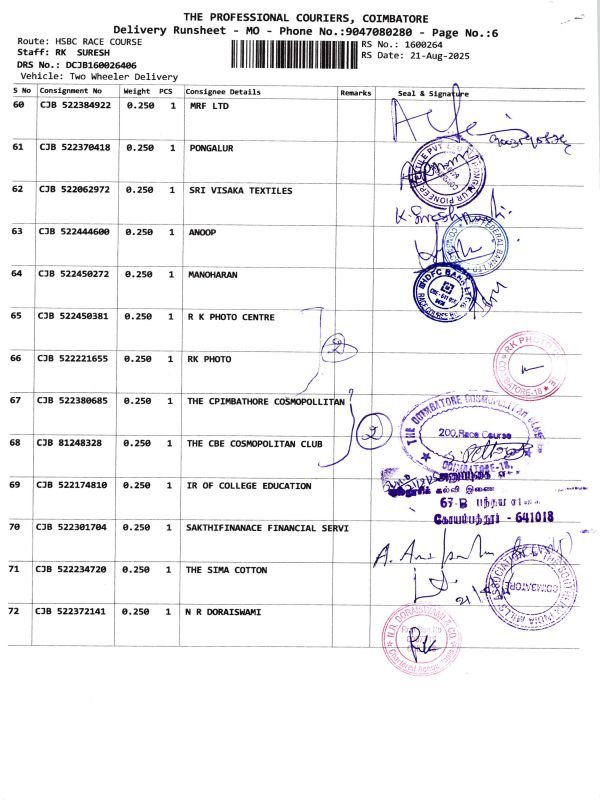 THE PROFESSIONAL COURIERS, COIMBATORE
Delivery Runsheet - MO - Phone No.:9047080280 - Page No.:6
Route: HSBC RACE COURSE
RS No.: 1600264
Staff: RK SURESH
RS Date: 21-Aug-2025
DRS No.: DCJB160026406
Vehicle: Two Wheeler Delivery
S No Consignment No Weight PCS Consignee Details Remarks Seal & Signature
60 CJB 522384922 0.250 1 MRF LTD
61 CJB 522370418 0.250 1 PONGALUR
62 CJB 522062972 0.250 1 SRI VISAKA TEXTILES
63 CJB 522444600 0.250 1 ANOOP
FEDERAL BANK LTD
64 CJB 522450272 0.250 1 MANOHARAN
HDFC BANK LTD
65 CJB 522450381 0.250 1 R K PHOTO CENTRE
2
66 CJB 522221655 0.250 1 RK PHOTO
RK PHOTO
67 CJB 522380685 0.250 1 THE CPIMBATHORE COSMOPOLLITAN
THE COIMBATORE COSMOPOLITAN
2
200, Race Course
68 CJB 81248328 0.250 1 THE CBE COSMOPOLITAN CLUB
COIMBATORE-18.
69 CJB 522174810 0.250 1 IR OF COLLEGE EDUCATION
கல்வி இணை
67-B பந்தய
கோயம்புத்தூர் - 641018
70 CJB 522301704 0.250 1 SAKTHIFINANACE FINANCIAL SERVI
71 CJB 522234720 0.250 1 THE SIMA COTTON
COIMBATORE
72 CJB 522372141 0.250 1 N R DORAISWAMI
N.R. DORAISWAMI & CO.